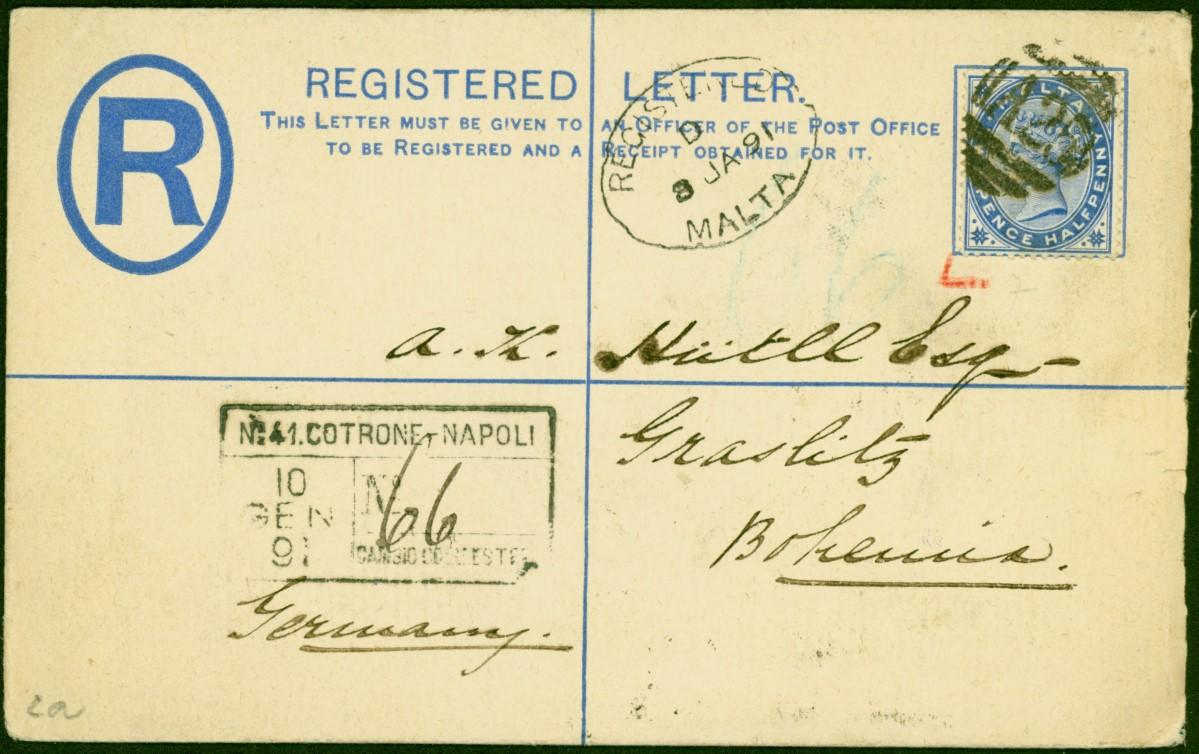 R
REGISTERED LETTER.
THIS LETTER MUST BE GIVEN TO AN OFFICER OF THE POST OFFICE
TO BE REGISTERED AND A RECEIPT OBTAINED FOR IT.
REGISTERED
D
8 JA 91
MALTA
MALTA
PENCE HALFPENNY
A. K. Hütll Esq
Graslitz
Bohemia.
Germany.
Nº 41. COTRONE-NAPOLI
10
GEN
91
Nº
66
2a